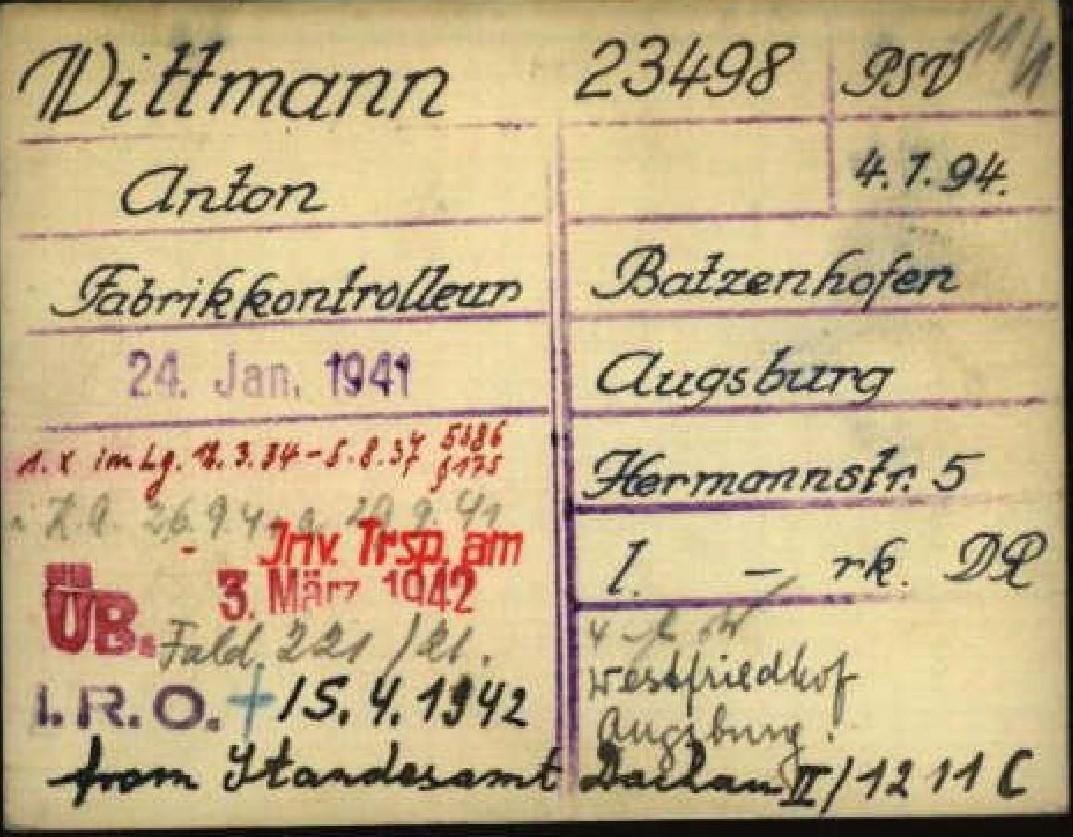 Wittmann 23498 PSV
Anton 4.7.94.
Fabrikkontrolleur Batzenhofen
24. Jan. 1941 Augsburg
1. x im Lg. 12.3.34-5.8.37 5886 §175 Hermannstr. 5
26.9.41
Inv. Trsp. am
3. März 1942
l. – rk. DR
ÜB.
Westfriedhof
I.R.O. + 15.4.1942 Augsburg.
from Standesamt Dachau II/1211 C